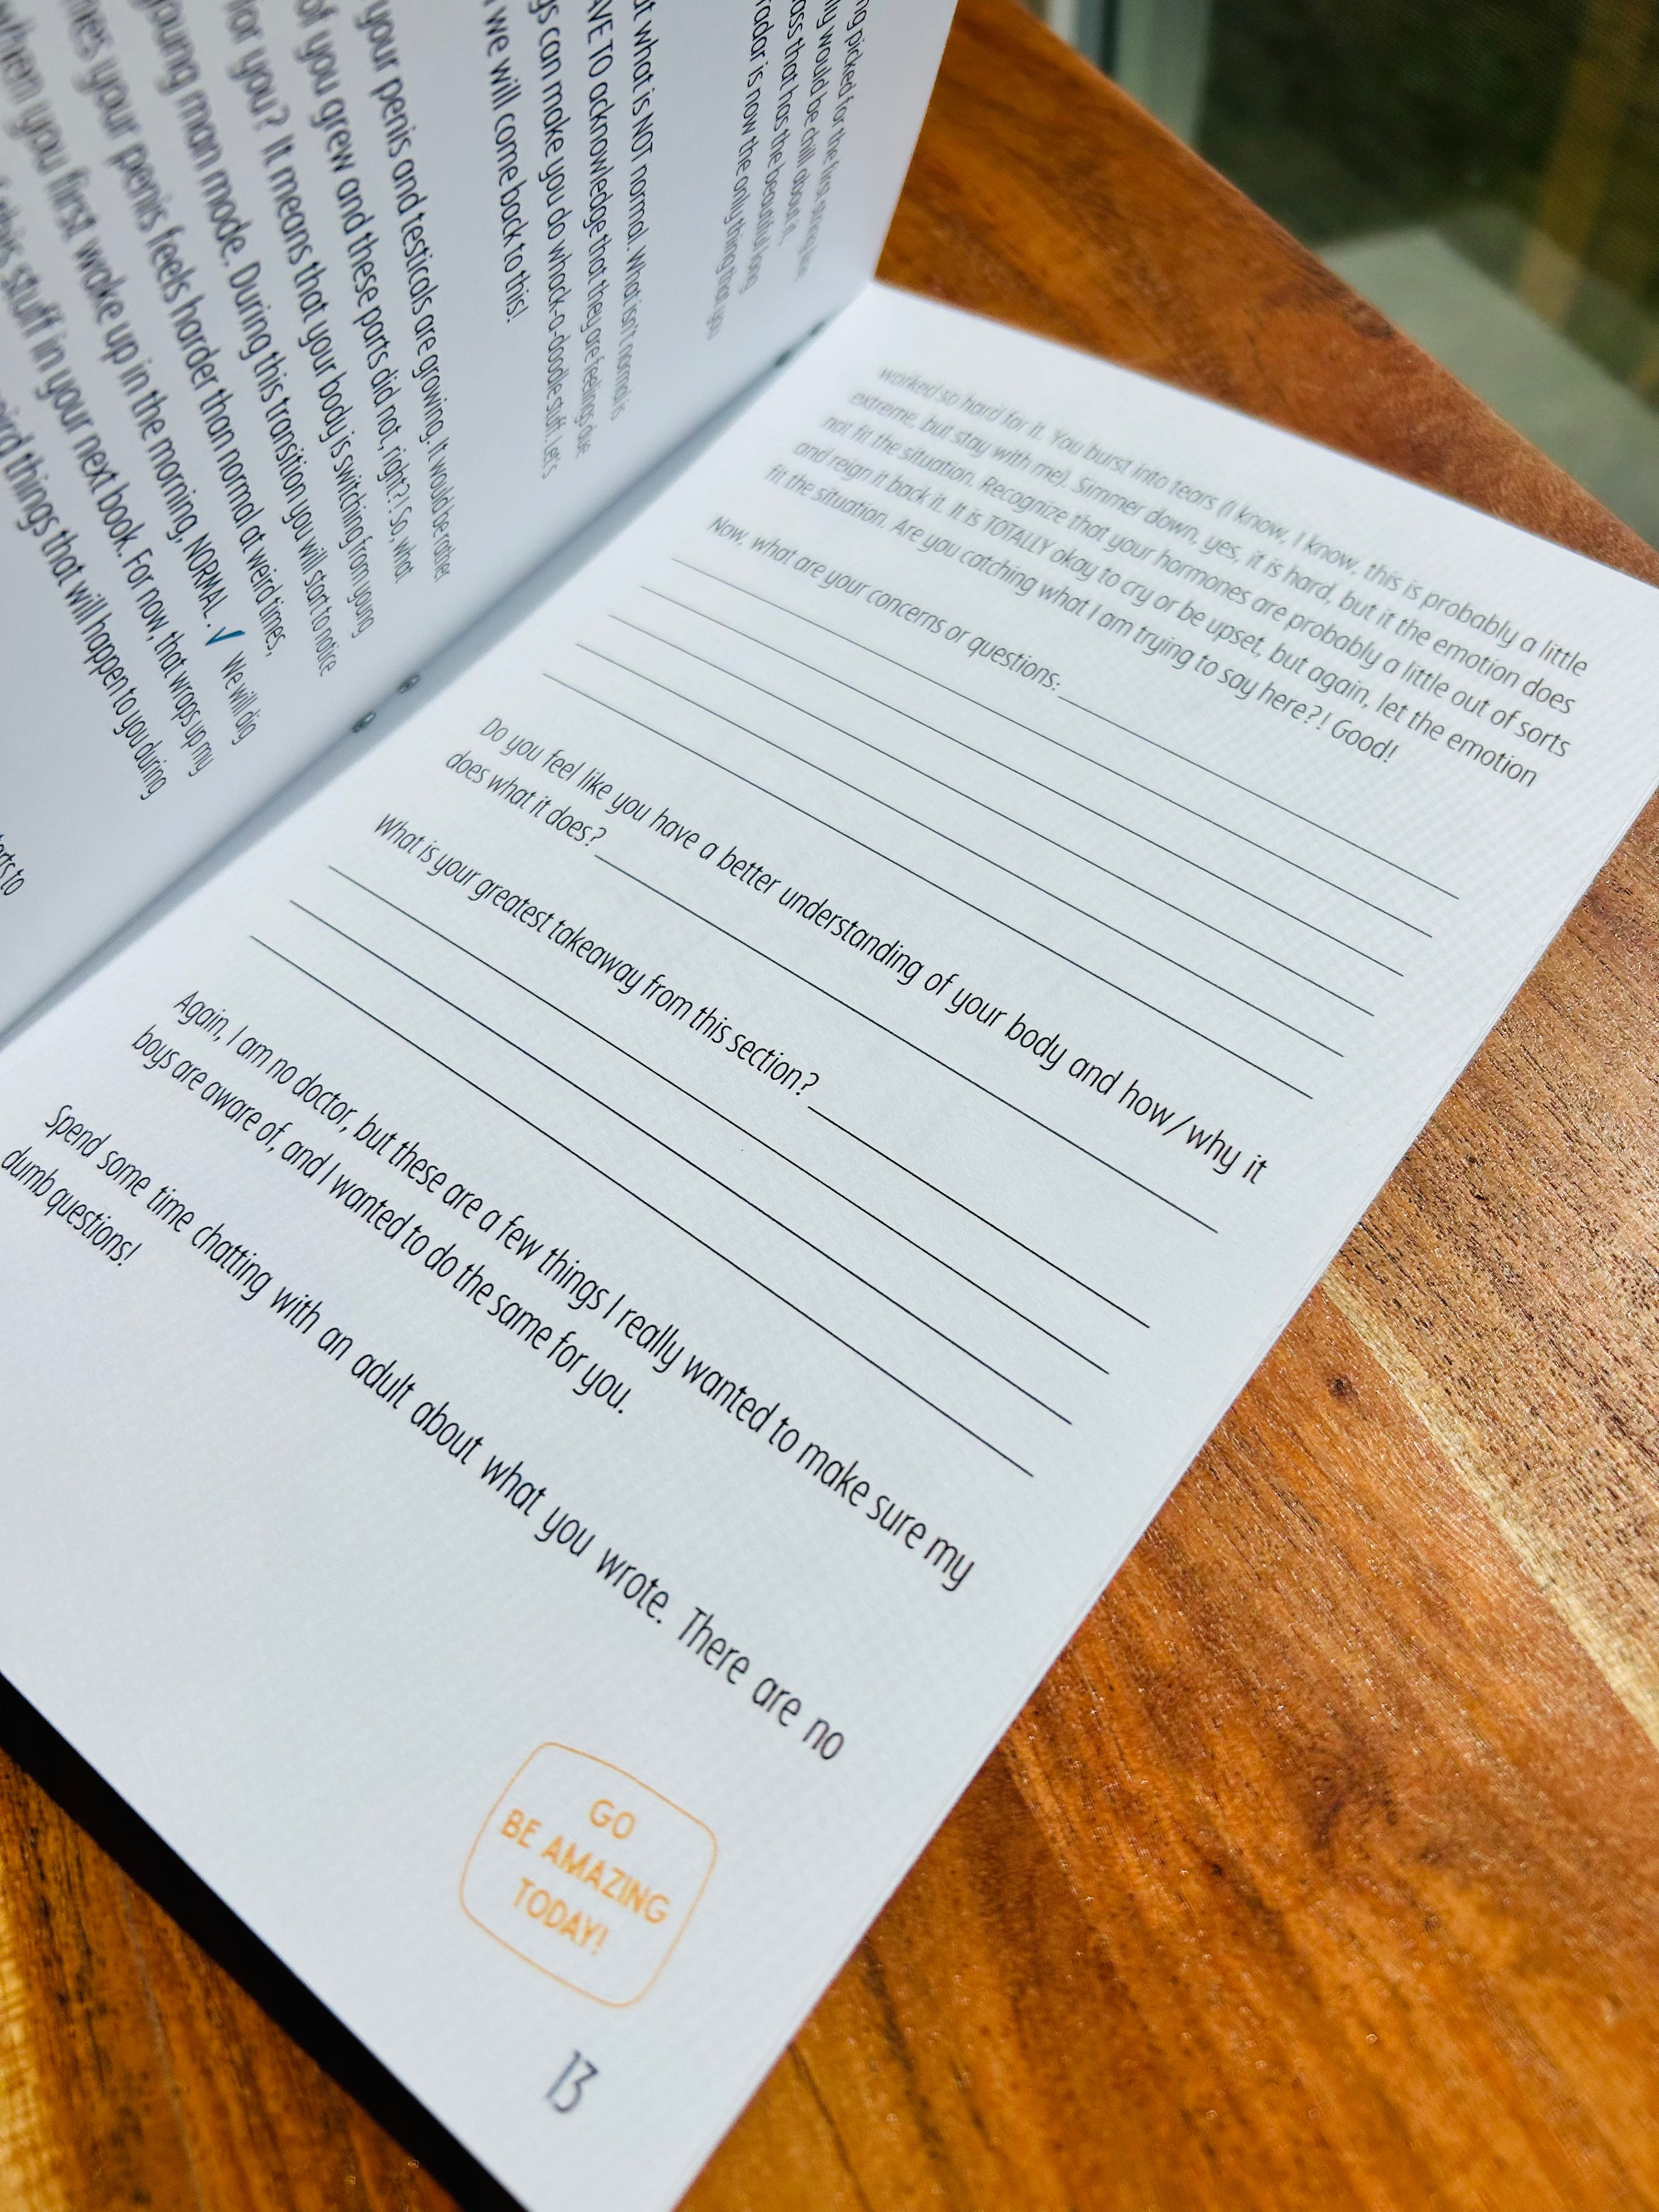 ng picked for the first string line
ly would be chill about it,
ass that has the beautiful long
radar is now the only thing that you
at what is NOT normal. What isn't normal is
AVE TO acknowledge that they are feelings due
gs can make you do whack-a-doodle stuff. Let's
we will come back to this!
your penis and testicals are growing. It would be rather
of you grew and these parts did not, right?! So, what
for you? It means that your body is switching from young
young man mode. During this transition you will start to notice
mes your penis feels harder than normal at weird times,
when you first wake up in the morning, NORMAL. ✓ We will dig
this stuff in your next book. For now, that wraps up my
weird things that will happen to you during
worked so hard for it. You burst into tears (I know, I know, this is probably a little
extreme, but stay with me). Simmer down, yes, it is hard, but it the emotion does
not fit the situation. Recognize that your hormones are probably a little out of sorts
and reign it back it. It is TOTALLY okay to cry or be upset, but again, let the emotion
fit the situation. Are you catching what I am trying to say here?! Good!
Now, what are your concerns or questions:
Do you feel like you have a better understanding of your body and how/why it
does what it does?
What is your greatest takeaway from this section?
Again, I am no doctor, but these are a few things I really wanted to make sure my
boys are aware of, and I wanted to do the same for you.
Spend some time chatting with an adult about what you wrote. There are no
dumb questions!
GO
BE AMAZING
TODAY!
13